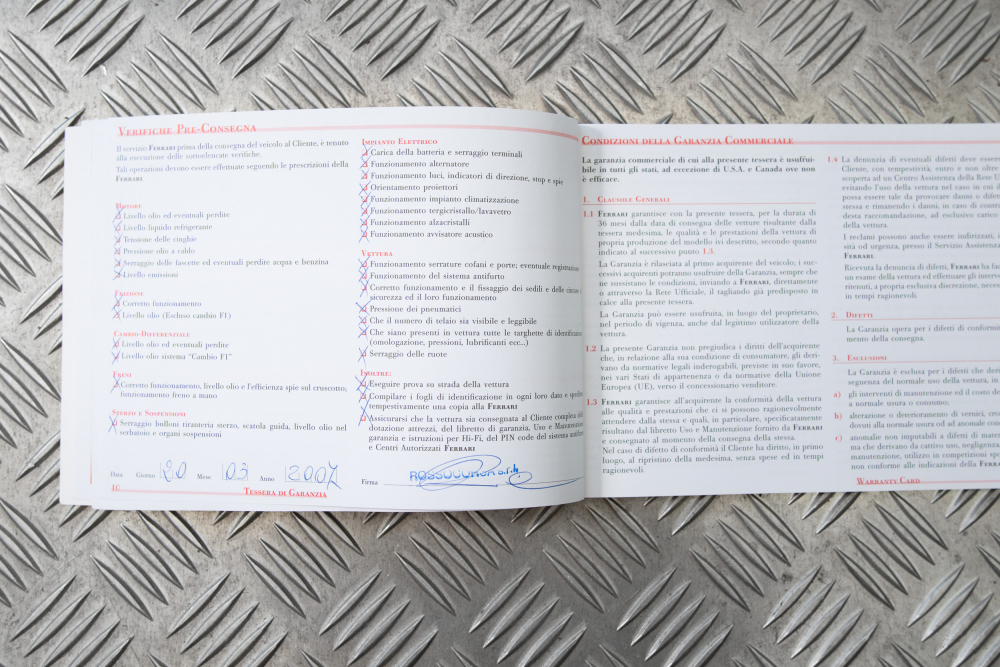 VERIFICHE PRE-CONSEGNA
Il servizio FERRARI prima della consegna del veicolo al Cliente, è tenuto
alla esecuzione delle sottoelencate verifiche.
Tali operazioni devono essere effettuate seguendo le prescrizioni della
FERRARI.
MOTORE
Livello olio ed eventuali perdite
Livello liquido refrigerante
Tensione delle cinghie
Pressione olio a caldo
Serraggio delle fascette ed eventuali perdite acqua e benzina
Livello emissioni
FRIZIONE
Corretto funzionamento
Livello olio (Escluso cambio F1)
CAMBIO-DIFFERENZIALE
Livello olio ed eventuali perdite
Livello olio sistema “Cambio F1”
FRENI
Corretto funzionamento, livello olio e l'efficienza spie sul cruscotto;
funzionamento freno a mano
STERZO E SOSPENSIONI
Serraggio bulloni tiranteria sterzo, scatola guida, livello olio nel
serbatoio e organi sospensioni
Data Giorno 20 Mese 03 Anno 2007
16 TESSERA DI GARANZIA
IMPIANTO ELETTRICO
Carica della batteria e serraggio terminali
Funzionamento alternatore
Funzionamento luci, indicatori di direzione, stop e spie
Orientamento proiettori
Funzionamento impianto climatizzazione
Funzionamento tergicristallo/lavavetro
Funzionamento alzacristalli
Funzionamento avvisatore acustico
VETTURA
Funzionamento serrature cofani e porte; eventuale registrazione
Funzionamento del sistema antifurto
Corretto funzionamento e il fissaggio dei sedili e delle cinture di
sicurezza ed il loro funzionamento
Pressione dei pneumatici
Che il numero di telaio sia visibile e leggibile
Che siano presenti in vettura tutte le targhette di identificazione
(omologazione, pressioni, lubrificanti ecc..)
Serraggio delle ruote
INOLTRE:
Eseguire prova su strada della vettura
Compilare i fogli di identificazione in ogni loro dato e spedire
tempestivamente una copia alla FERRARI
Assicurarsi che la vettura sia consegnata al Cliente completa di
dotazione attrezzi, del libretto di garanzia, Uso e Manutenzione
garanzia e istruzioni per Hi-Fi, del PIN code del sistema antifurto
e Centri Autorizzati FERRARI
Firma
CONDIZIONI DELLA GARANZIA COMMERCIALE
La garanzia commerciale di cui alla presente tessera è usufrui-
bile in tutti gli stati, ad eccezione di U.S.A. e Canada ove non
è efficace.
1. CLAUSOLE GENERALI
1.1 FERRARI garantisce con la presente tessera, per la durata di
36 mesi dalla data di consegna delle vetture risultante dalla
tessera medesima, le qualità e le prestazioni della vettura di
propria produzione del modello ivi descritto, secondo quanto
indicato al successivo punto 1.3.
La Garanzia è rilasciata al primo acquirente del veicolo; i suc-
cessivi acquirenti potranno usufruire della Garanzia, sempre che
ne sussistano le condizioni, inviando a FERRARI, direttamente
o attraverso la Rete Ufficiale, il tagliando già predisposto in
calce alla presente tessera.
La Garanzia può essere usufruita, in luogo del proprietario,
nel periodo di vigenza, anche dal legittimo utilizzatore della
vettura.
1.2 La presente Garanzia non pregiudica i diritti dell'acquirente
che, in relazione alla sua condizione di consumatore, gli deri-
vano da normative legali inderogabili, previste in suo favore,
nei vari Stati di appartenenza o da normative della Unione
Europea (UE), verso il concessionario venditore.
1.3 FERRARI garantisce all'acquirente la conformità della vettura
alle qualità e prestazioni che ci si possono ragionevolmente
attendere dalla stessa e quali, in particolare, specificatamente
risultano dal libretto Uso e Manutenzione fornito da FERRARI
e consegnato al momento della consegna della stessa.
Nel caso di difetto di conformità il Cliente ha diritto, in primo
luogo, al ripristino della medesima, senza spese ed in tempi
ragionevoli.
1.4 La denuncia di eventuali difetti deve essere
Cliente, con tempestività, entro e non oltre
scoperta ad un Centro Assistenza della Rete U
evitando l'uso della vettura nel caso in cui il
possa essere tale da provocare danno o difet
stessa e rimanendo i danni, in caso di contr
desta raccomandazione, ad esclusivo carico
della vettura.
I reclami possono anche essere indirizzati, i
sità od urgenza, presso il Servizio Assistenza
FERRARI.
Ricevuta la denuncia di difetti, FERRARI ha fa
un esame della vettura ed effettuare gli interv
ritenuti, a propria esclusiva discrezione, neces
in tempi ragionevoli.
2. DIFETTI
La Garanzia opera per i difetti di conform
mento della consegna.
3. ESCLUSIONI
La Garanzia è esclusa per i difetti che deri
seguenza del normale uso della vettura, in
a) gli interventi di manutenzione ed il costo de
a normale usura o consumo;
b) alterazione o deterioramento di vernici, cro
dovuti alla normale usura od ad anomale con
c) anomalie non imputabili a difetti di mater
ma che derivano da cattivo uso, negligenza,
manutenzione, utilizzo in competizioni spo
non conforme alle indicazioni della FERRA
WARRANTY CARD